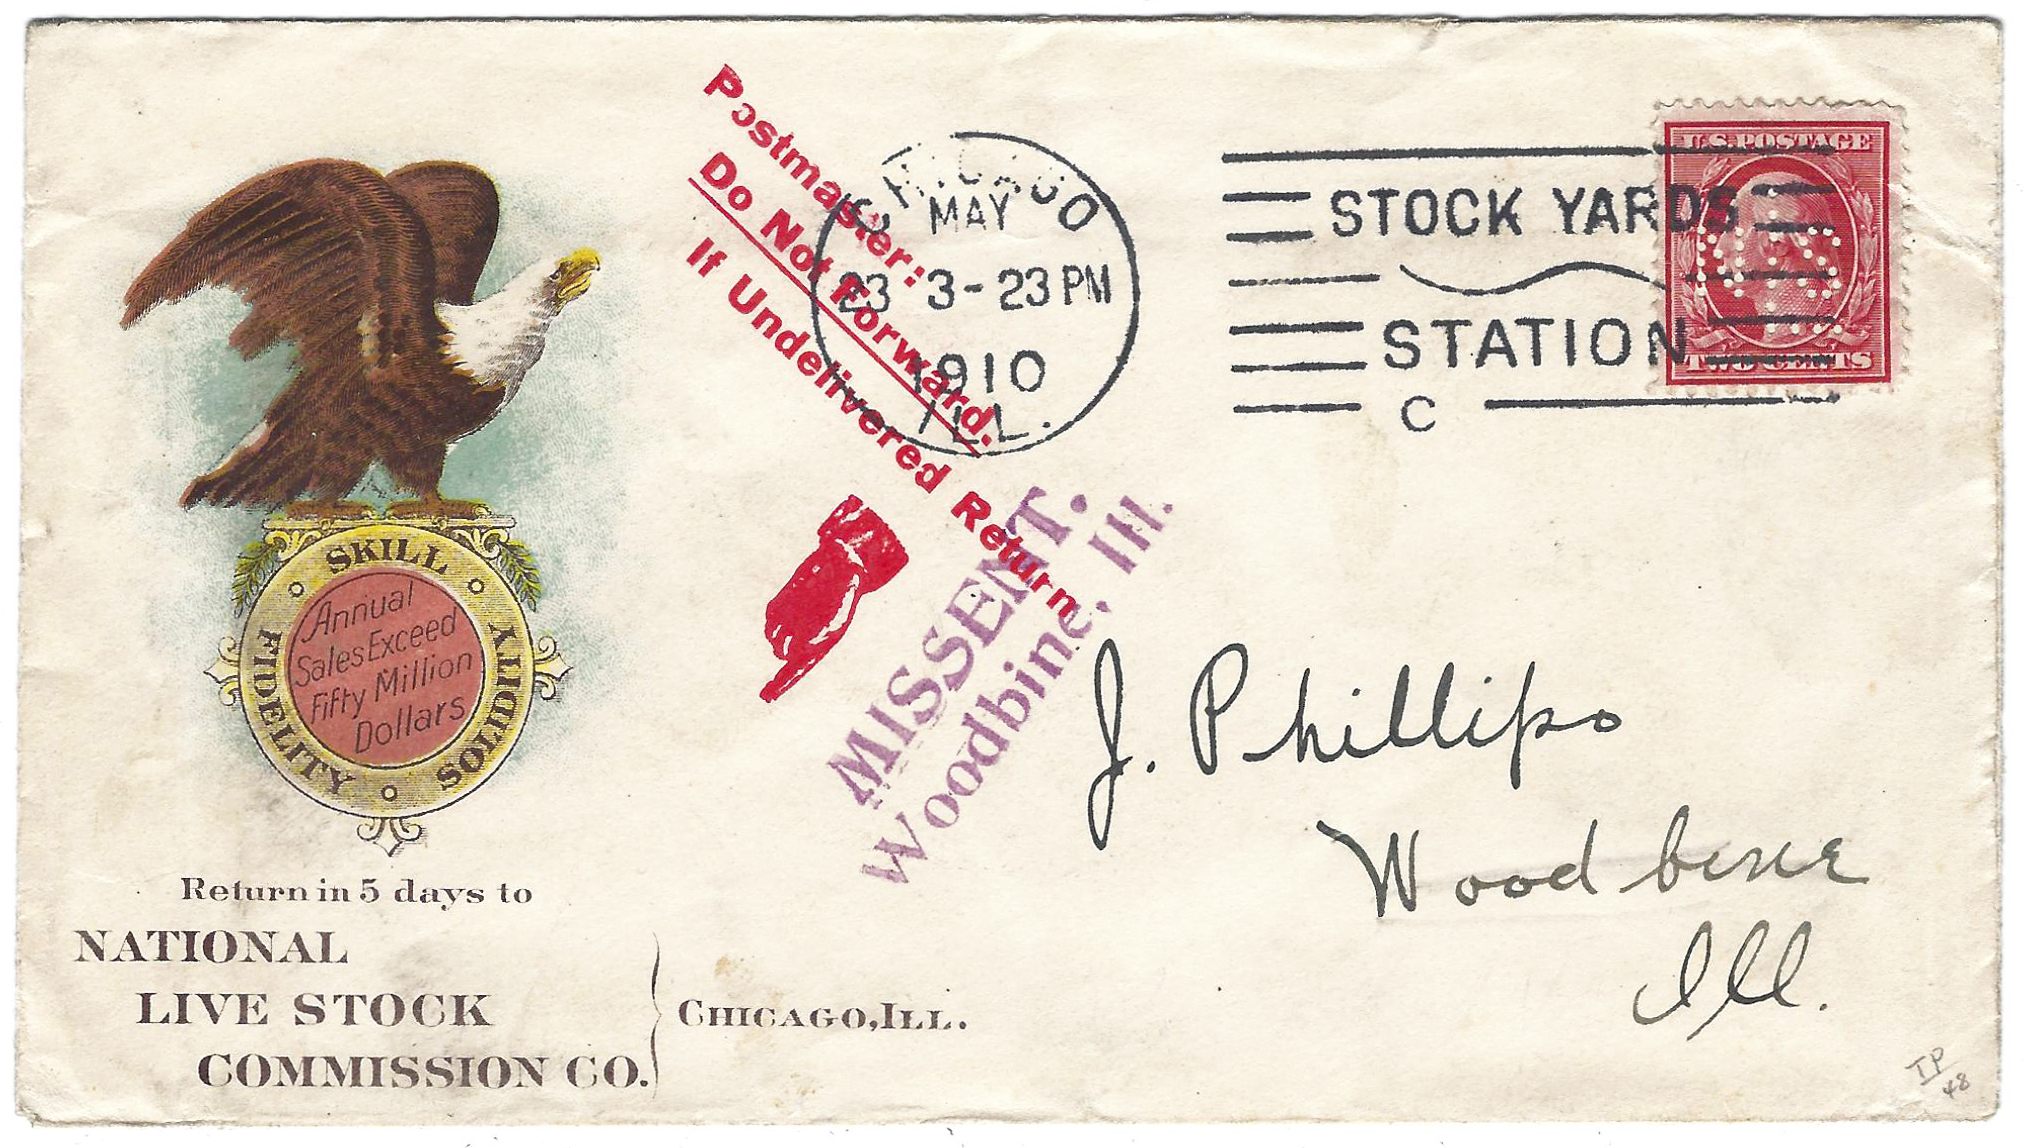 Postmaster:
Do Not Forward.
If Undelivered Return
CHICAGO
MAY
23 3-23 PM
1910
ILL.
STOCK YARDS
STATION
C
U.S. POSTAGE
TWO CENTS
SKILL
FIDELITY
SOLIDITY
Annual
Sales Exceed
Fifty Million
Dollars
MISSENT.
Woodbine, Ill.
J. Phillips
Woodbine
Ill.
Return in 5 days to
NATIONAL
LIVE STOCK
COMMISSION CO.
CHICAGO, ILL.
TP
48